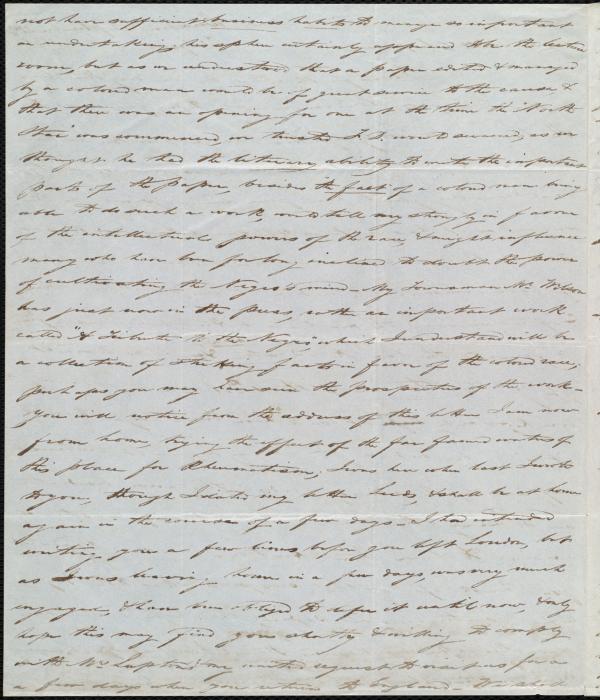 not have sufficient business habits to manage so important
an undertaking, his sphere certainly appeared to be the lecture
room, but as we understood that a paper edited & managed
by a colored man would be of great service to the cause &
that there was an opening for one at the time the North
Star was commenced, we trusted F. D. would succeed, as we
thought he had the literary ability to write the important
parts of the paper, besides the fact of a colored man being
able to do such a work, would tell very strongly in favour
of the intellectual powers of the race, & might influence
many who have been for long inclined to doubt the power
of cultivating the Negro's mind – My Townsman Mr. Wilson
has just now in the press, with an important work
called "A Tribute to the Negro," which I understand will be
a collection of striking facts in favor of the colored race,
perhaps you may have seen the prospectus of the work –
You will notice from the address of this letter I am now
from home, trying the effect of the far famed waters of
this place for Rheumatism, I was here when last I wrote
to you, though I dated my letter Leeds, & shall be at home
again in the course of a few days – I had intended
writing you a few lines before you left London, but
as I was leaving home in a few days, was very much
engaged, & have been obliged to defer it until now, & only
hope this may find you shortly & willing to comply
with Mrs. Lupton & my united request to visit us for a
a few days when you return to England –